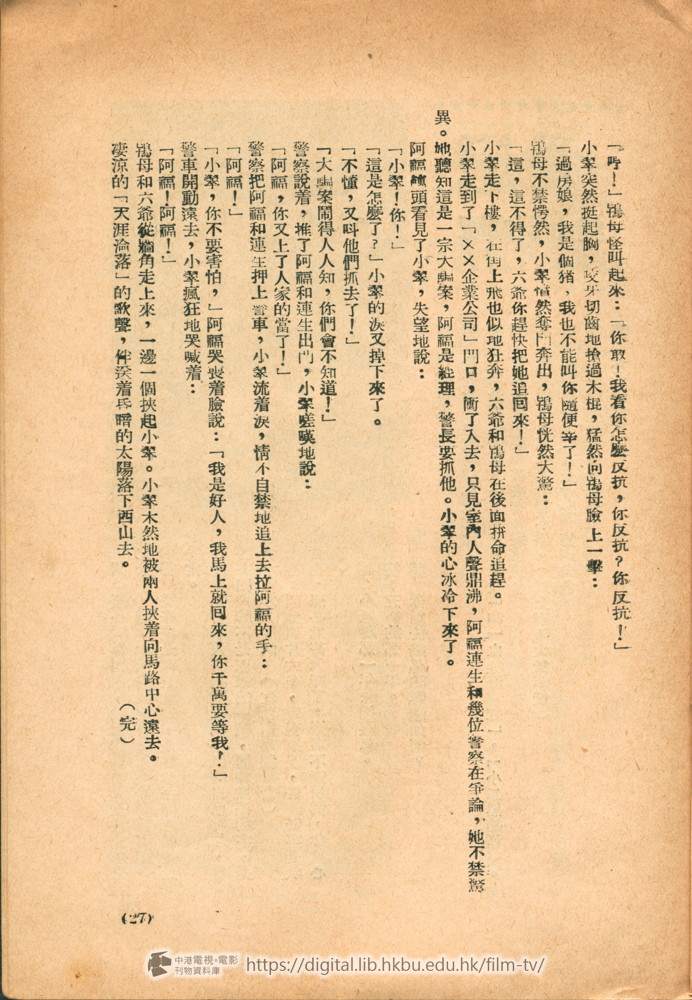 「哼！」鴇母怪叫起來：「你敢！我看你怎麼反抗，你反抗？你反抗！」
小翠突然挺起胸，咬牙切齒地搶過木棍，猛然向鴇母臉上一擊：
「過房娘，我是個猪，我也不能叫你隨便宰了！」
鴇母不禁愕然，小翠憤然奪門奔出，鴇母恍然大驚：
「這，這不得了，六爺你趕快把她追回來！」
小翠走下樓，在街上飛也似地狂奔，六爺和鴇母在後面拼命追趕。
小翠走到了「××企業公司」門口，衝了入去，只見室內人聲鼎沸，阿福連生和幾位警察在爭論，她不禁驚
異。她聽知這是一宗大騙案，阿福是經理，警長要抓他。小翠的心冰冷下來了。
阿福轉頭看見了小翠，失望地說：
「小翠！你！」
「這是怎麼了？」小翠的淚又掉下來了。
「不懂，又叫他們抓去了！」
「大騙案鬧得人人知，你們會不知道！」
警察說着，推了阿福和連生出門，小翠嗟嘆地說：
「阿福，你又上了人家的當了！」
警察把阿福和連生押上警車，小翠流着淚，情不自禁地追上去拉阿福的手：
「阿福！」
「小翠，你不要害怕，」阿福哭喪着臉說：「我是好人，我馬上就回來，你千萬要等我！」
警車開動遠去，小翠瘋狂地哭喊着：
「阿福！阿福！」
鴇母和六爺從牆角走上來，一邊一個挾起小翠。小翠木然地被兩人挾着向馬路中心遠去。
凄涼的「天涯淪落」的歌聲，伴送着昏暗的太陽落下西山去。
（完）
(27)
中港電視·電影
刊物資料庫
https://digital.lib.hkbu.edu.hk/film-tv/